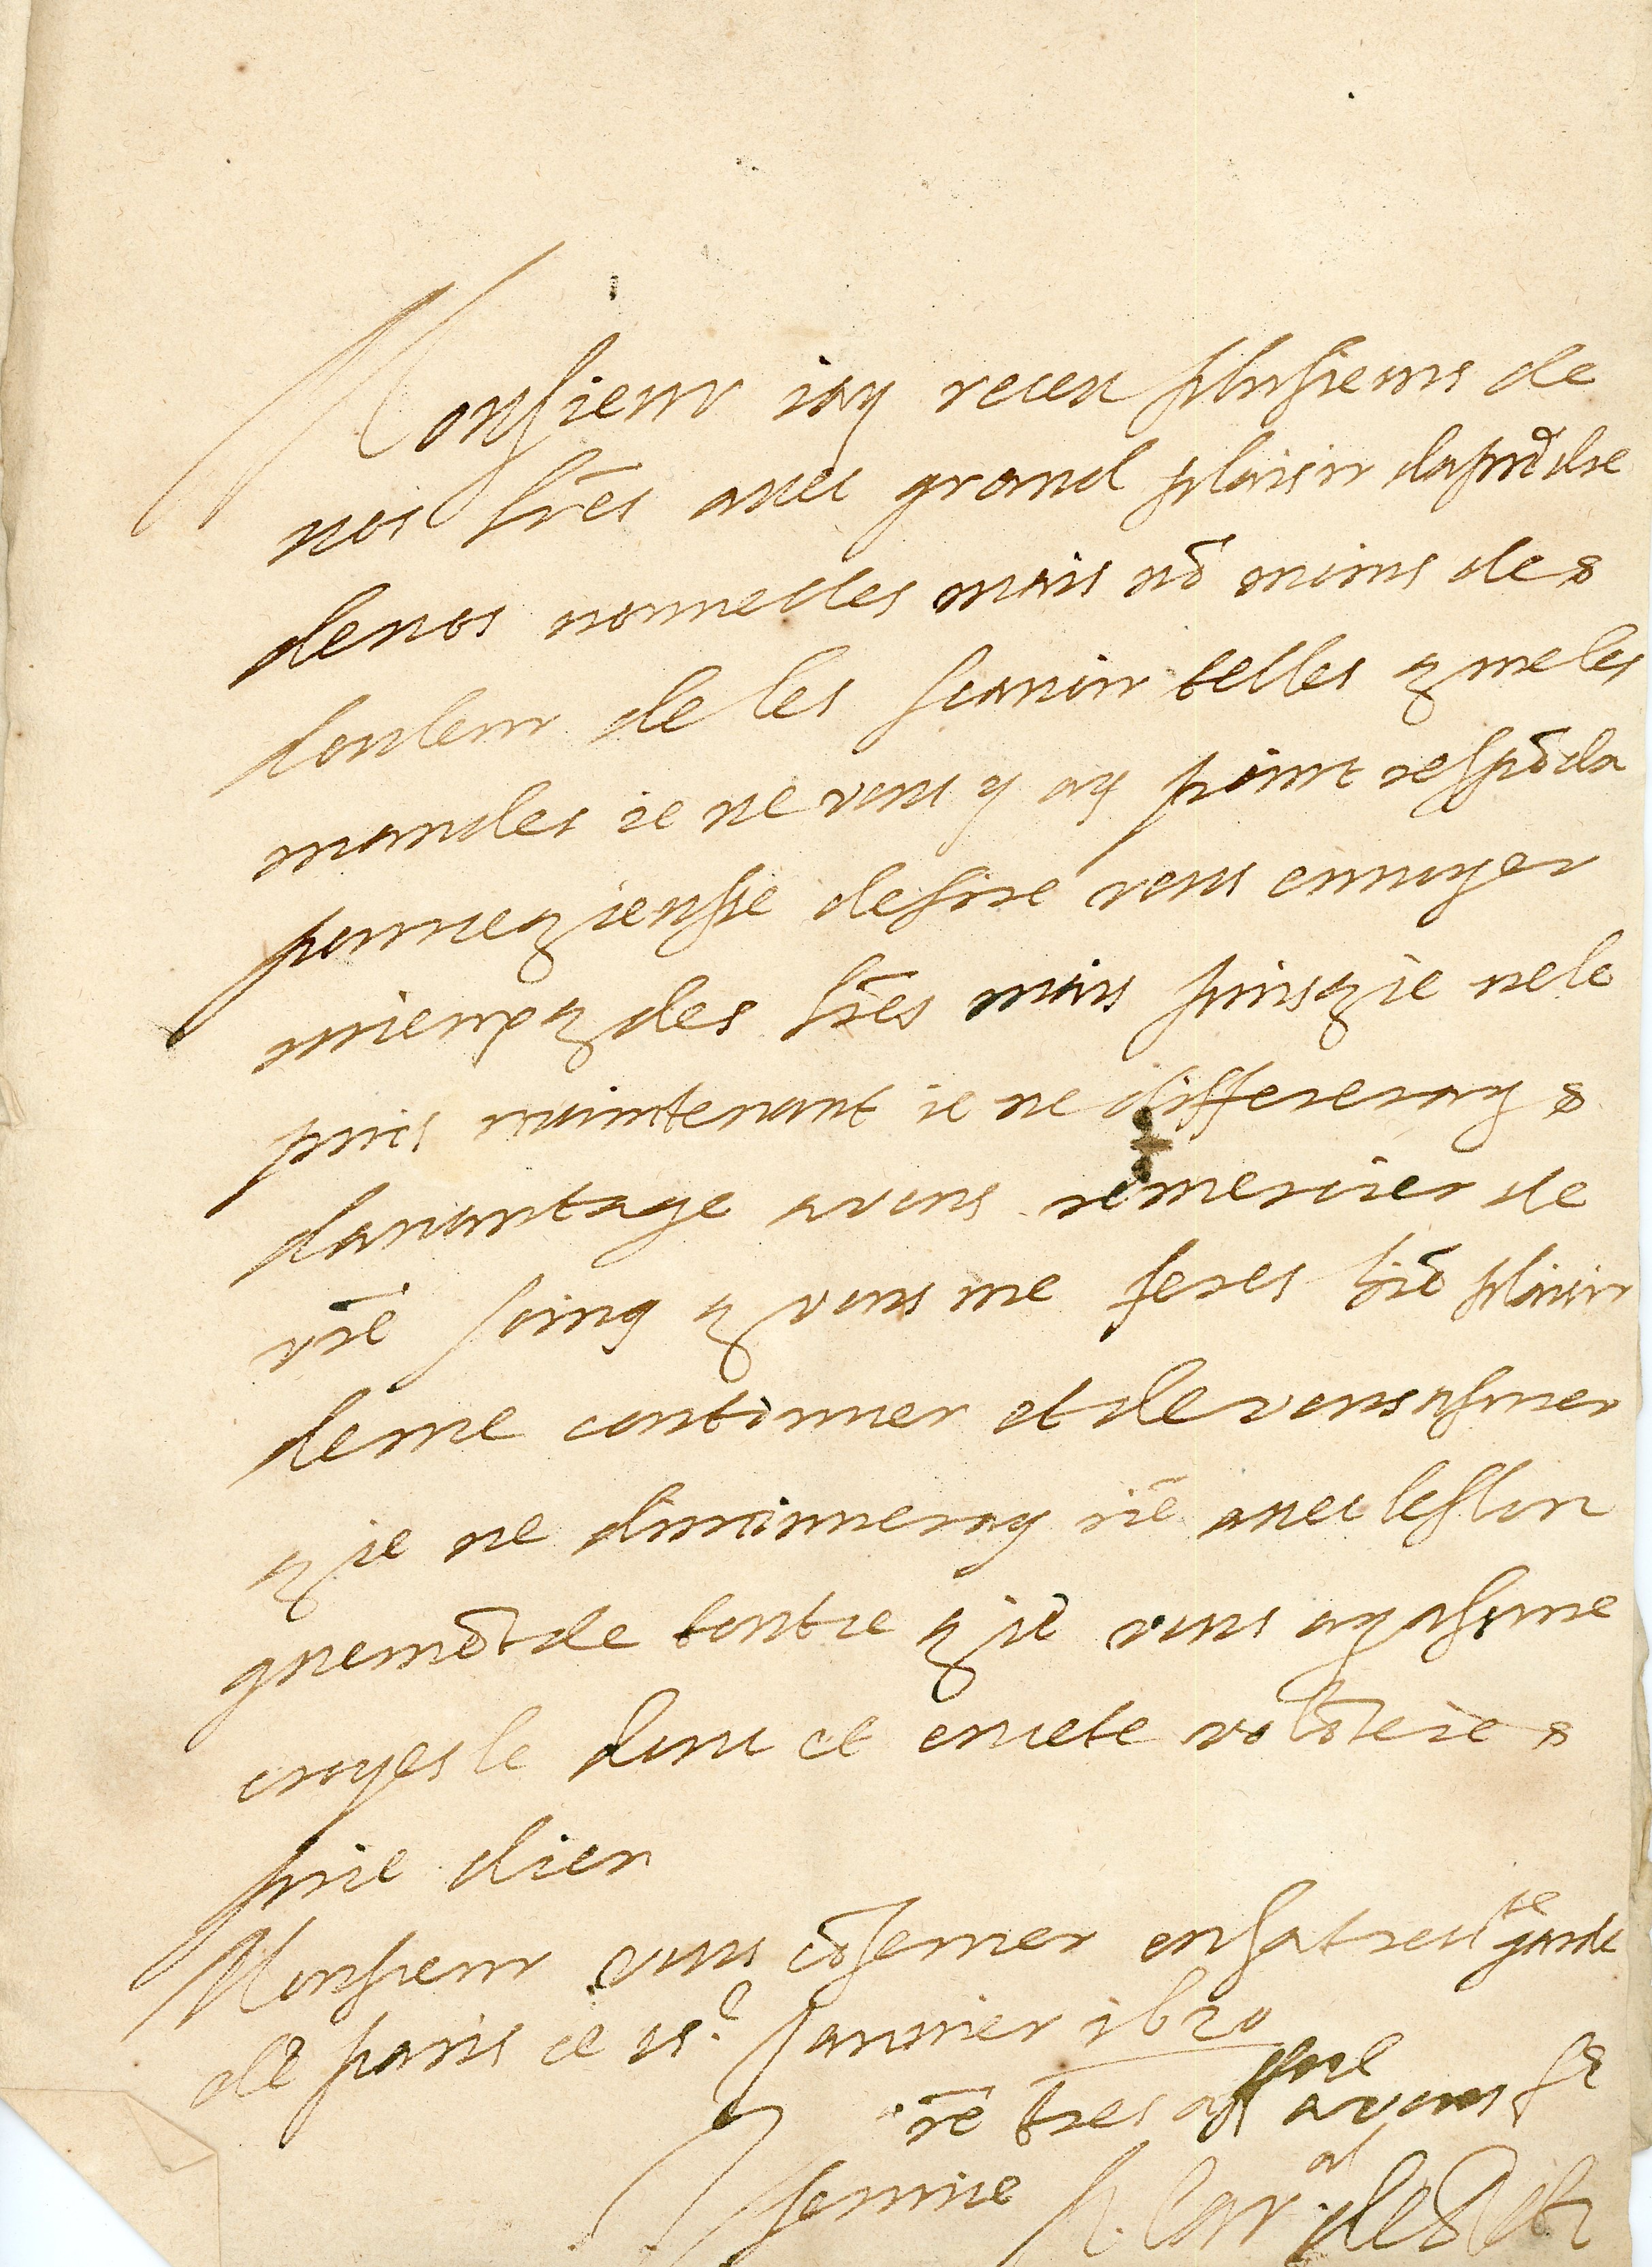 Monsieur iay receu plusieurs de
vos lr̃es auec grand plaisir daprẽdre
de vos nouuelles mais nõ moins de
douleur de les scauoir telles q me les
mandes ie ne vous y ay point respõdu
pource q ieusse desire vous enuoyer
mieux q des lr̃es mais puis q ie ne le
puis maintenant ie ne differeray
dauantage a vous remercier de
vr̃e soing q vous me feres biẽ plaisir
de me continuer et de vous asseurer
q ie ne diminueray riẽ auec leslon
gnemẽt de tout ce q ie vous ay asseure
croyes le donc et en cete volõte ie
prie dieu
Monsieur vous cõseruer en sa tresste garde
de paris ce Januier 1620
vr̃e tres aff.^né a vous
seruice h. Car.^al de Retz